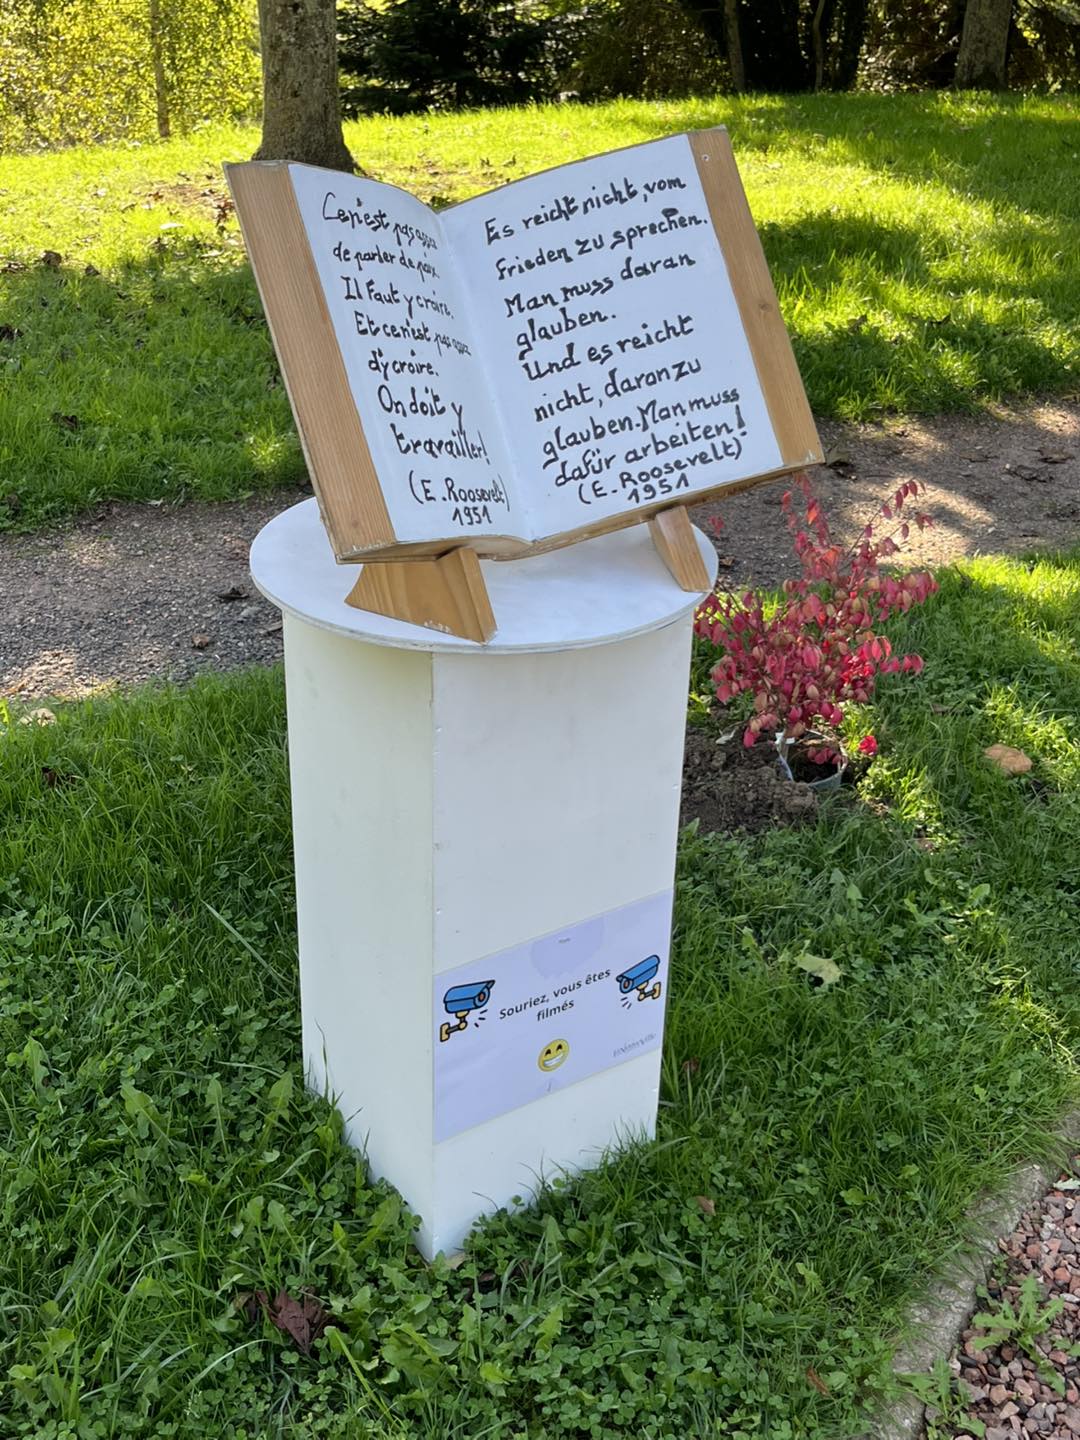 Ce n'est pas assez
de parler de paix.
Il Faut y croire.
Et ce n'est pas assez
d'y croire.
On doit y
travailler!
(E. Roosevelt)
1951
Es reicht nicht, vom
Frieden zu sprechen.
Man muss daran
glauben.
Und es reicht
nicht, daran zu
glauben. Man muss
dafür arbeiten!
(E. Roosevelt)
1951
Souriez, vous êtes
filmés